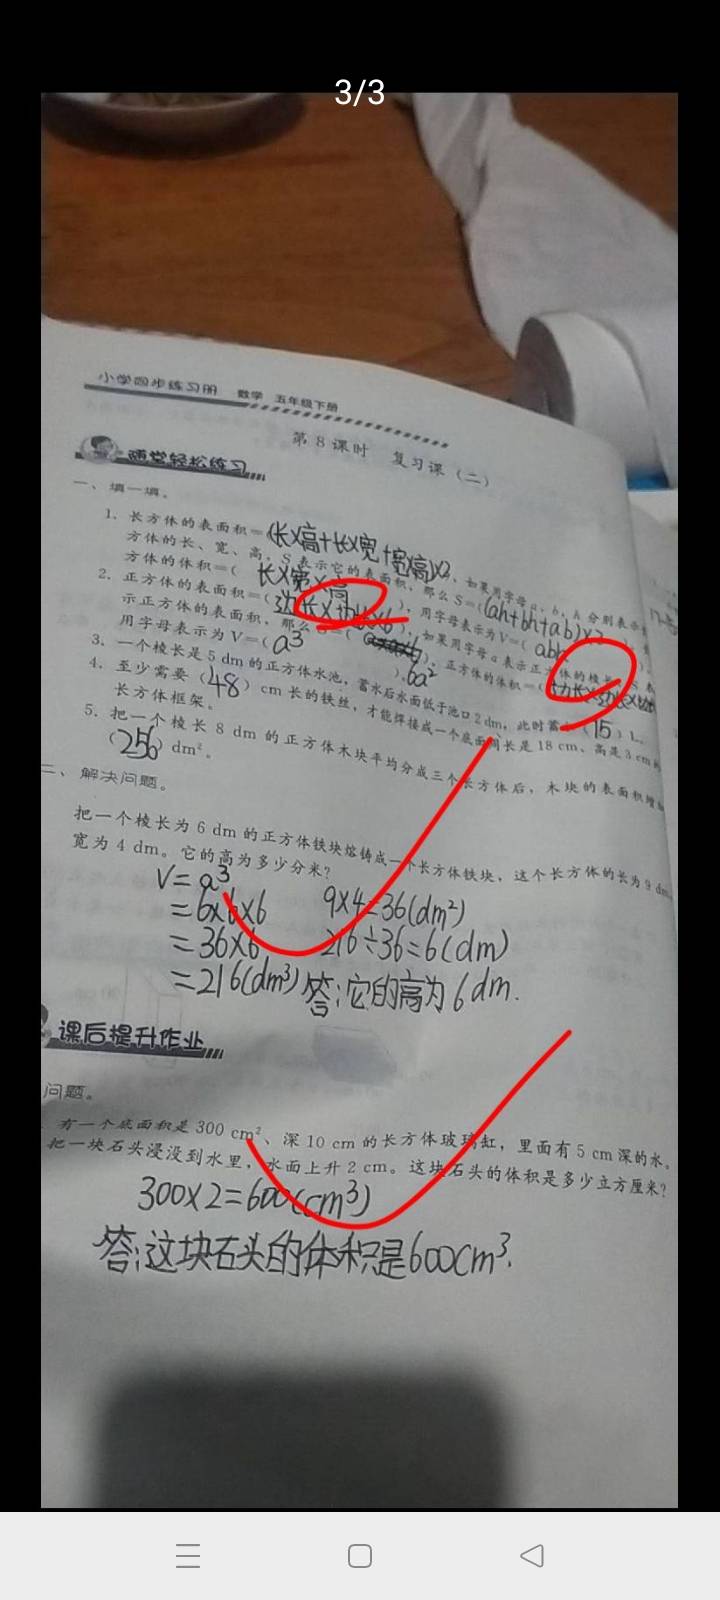 3/3
小学四步练习册 数学 五年级下册
第8课时 复习课(二)
随堂轻松练习
一、填一填。
1. 长方体的表面积=(长×高+长×宽+宽×高)×2, 如果用字母a、b、h分别表示
方体的长、宽、高,S表示它的表面积,那么S=(ah+bh+ab)×2
方体的体积=( 长×宽×高 ),用字母表示为V=( abh
2. 正方体的表面积=(边长×边长×6 ),如果用字母a表示正方体的棱长,S表
示正方体的表面积,那么S=( ),正方体的体积=(边长×边长×边长
用字母表示为V=( a³ ). 6a²
3. 一个棱长是5dm的正方体水池,蓄水后水面低于池口2dm,此时蓄水(15)L。
4. 至少需要(48)cm长的铁丝,才能焊接成一个底面周长是18cm、高是3cm的
长方体框架。
5. 把一个棱长8dm的正方体木块平均分成三个长方体后,木块的表面积增加
(256)dm²。
二、解决问题。
把一个棱长为6dm的正方体铁块熔铸成一个长方体铁块,这个长方体的长为9dm,
宽为4dm。它的高为多少分米?
V=a³
=6×6×6 9×4=36(dm²)
=36×6 216÷36=6(dm)
=216(dm³) 答:它的高为6dm.
课后提升作业
问题。
有一个底面积是300cm²、深10cm的长方体玻璃缸,里面有5cm深的水。
把一块石头浸没到水里,水面上升2cm。这块石头的体积是多少立方厘米?
300×2=600(cm³)
答:这块石头的体积是600cm³.